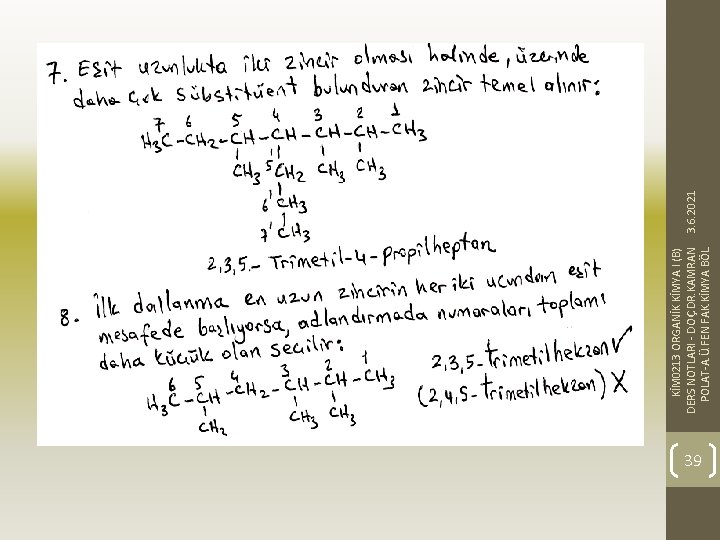 7. Eşit uzunlukta iki zincir olması halinde, üzerinde
daha çok sübstitüent bulunduran zincir temel alınır:
7 6 5 4 3 2 1
H3C-CH2-CH-CH-CH-CH-CH3
CH3 5'CH2 CH3 CH3
6'CH3
7'CH3
2,3,5-Trimetil-4-propilheptan
8. İlk dallanma en uzun zincirin her iki ucundan eşit
mesafede başlıyorsa, adlandırmada numaraları toplamı
daha küçük olan seçilir:
6 5 4 3 2 1
H3C-CH-CH2-CH-CH-CH3
CH2 CH3 CH3
2,3,5-trimetilhekzan ✓
(2,4,5-trimetilhekzan) X
KİM0213 ORGANİK KİMYA I (B)
DERS NOTLARI - DOÇ.DR.KAMRAN
POLAT-A.Ü.FEN FAK.KİMYA BÖL
3.6.2021
39